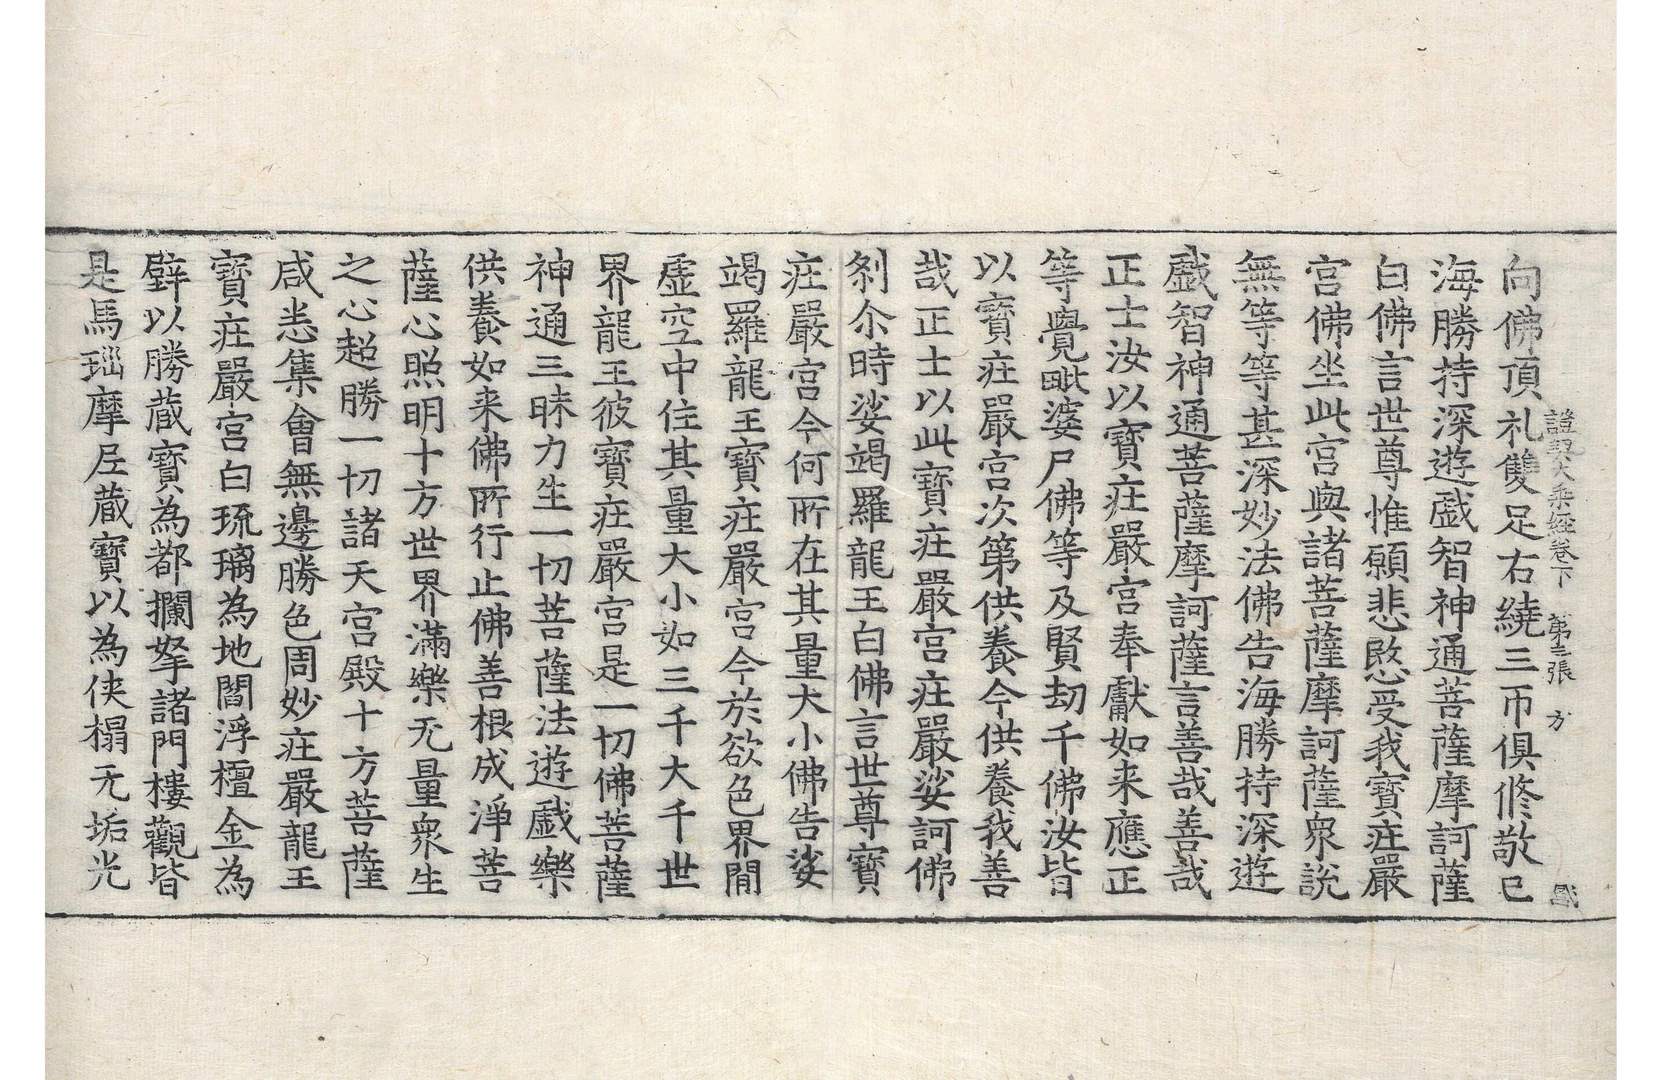 證契大乘經卷下　第三張　方
向佛頂礼雙足右繞三帀俱修敬已
海勝持深遊戲智神通菩薩摩訶薩
白佛言世尊惟願悲愍受我寶莊嚴
宮佛坐此宮與諸菩薩摩訶薩衆說
無等等甚深妙法佛告海勝持深遊
戲智神通菩薩摩訶薩言善哉善哉
正士汝以寶莊嚴宮奉獻如来應正
等覺毗婆尸佛等及賢劫千佛汝皆
以寶莊嚴宮次第供養今供養我善
哉正士以此寶莊嚴宮莊嚴娑訶佛
刹尒時娑竭羅龍王白佛言世尊寶
莊嚴宮今何所在其量大小佛告娑
竭羅龍王寶莊嚴宮今於欲色界閒
虛空中住其量大小如三千大千世
界龍王彼寶莊嚴宮是一切佛菩薩
神通三昧力生一切菩薩法遊戲樂
供養如来佛所行止佛善根成淨菩
薩心照明十方世界滿樂无量衆生
之心超勝一切諸天宮殿十方菩薩
咸悉集會無邊勝色周妙莊嚴龍王
寶莊嚴宮白琉璃為地閻浮檀金為
壁以勝蔵寶為都攔拏諸門樓觀皆
是馬瑙摩尼蔵寶以為侠榻无垢光